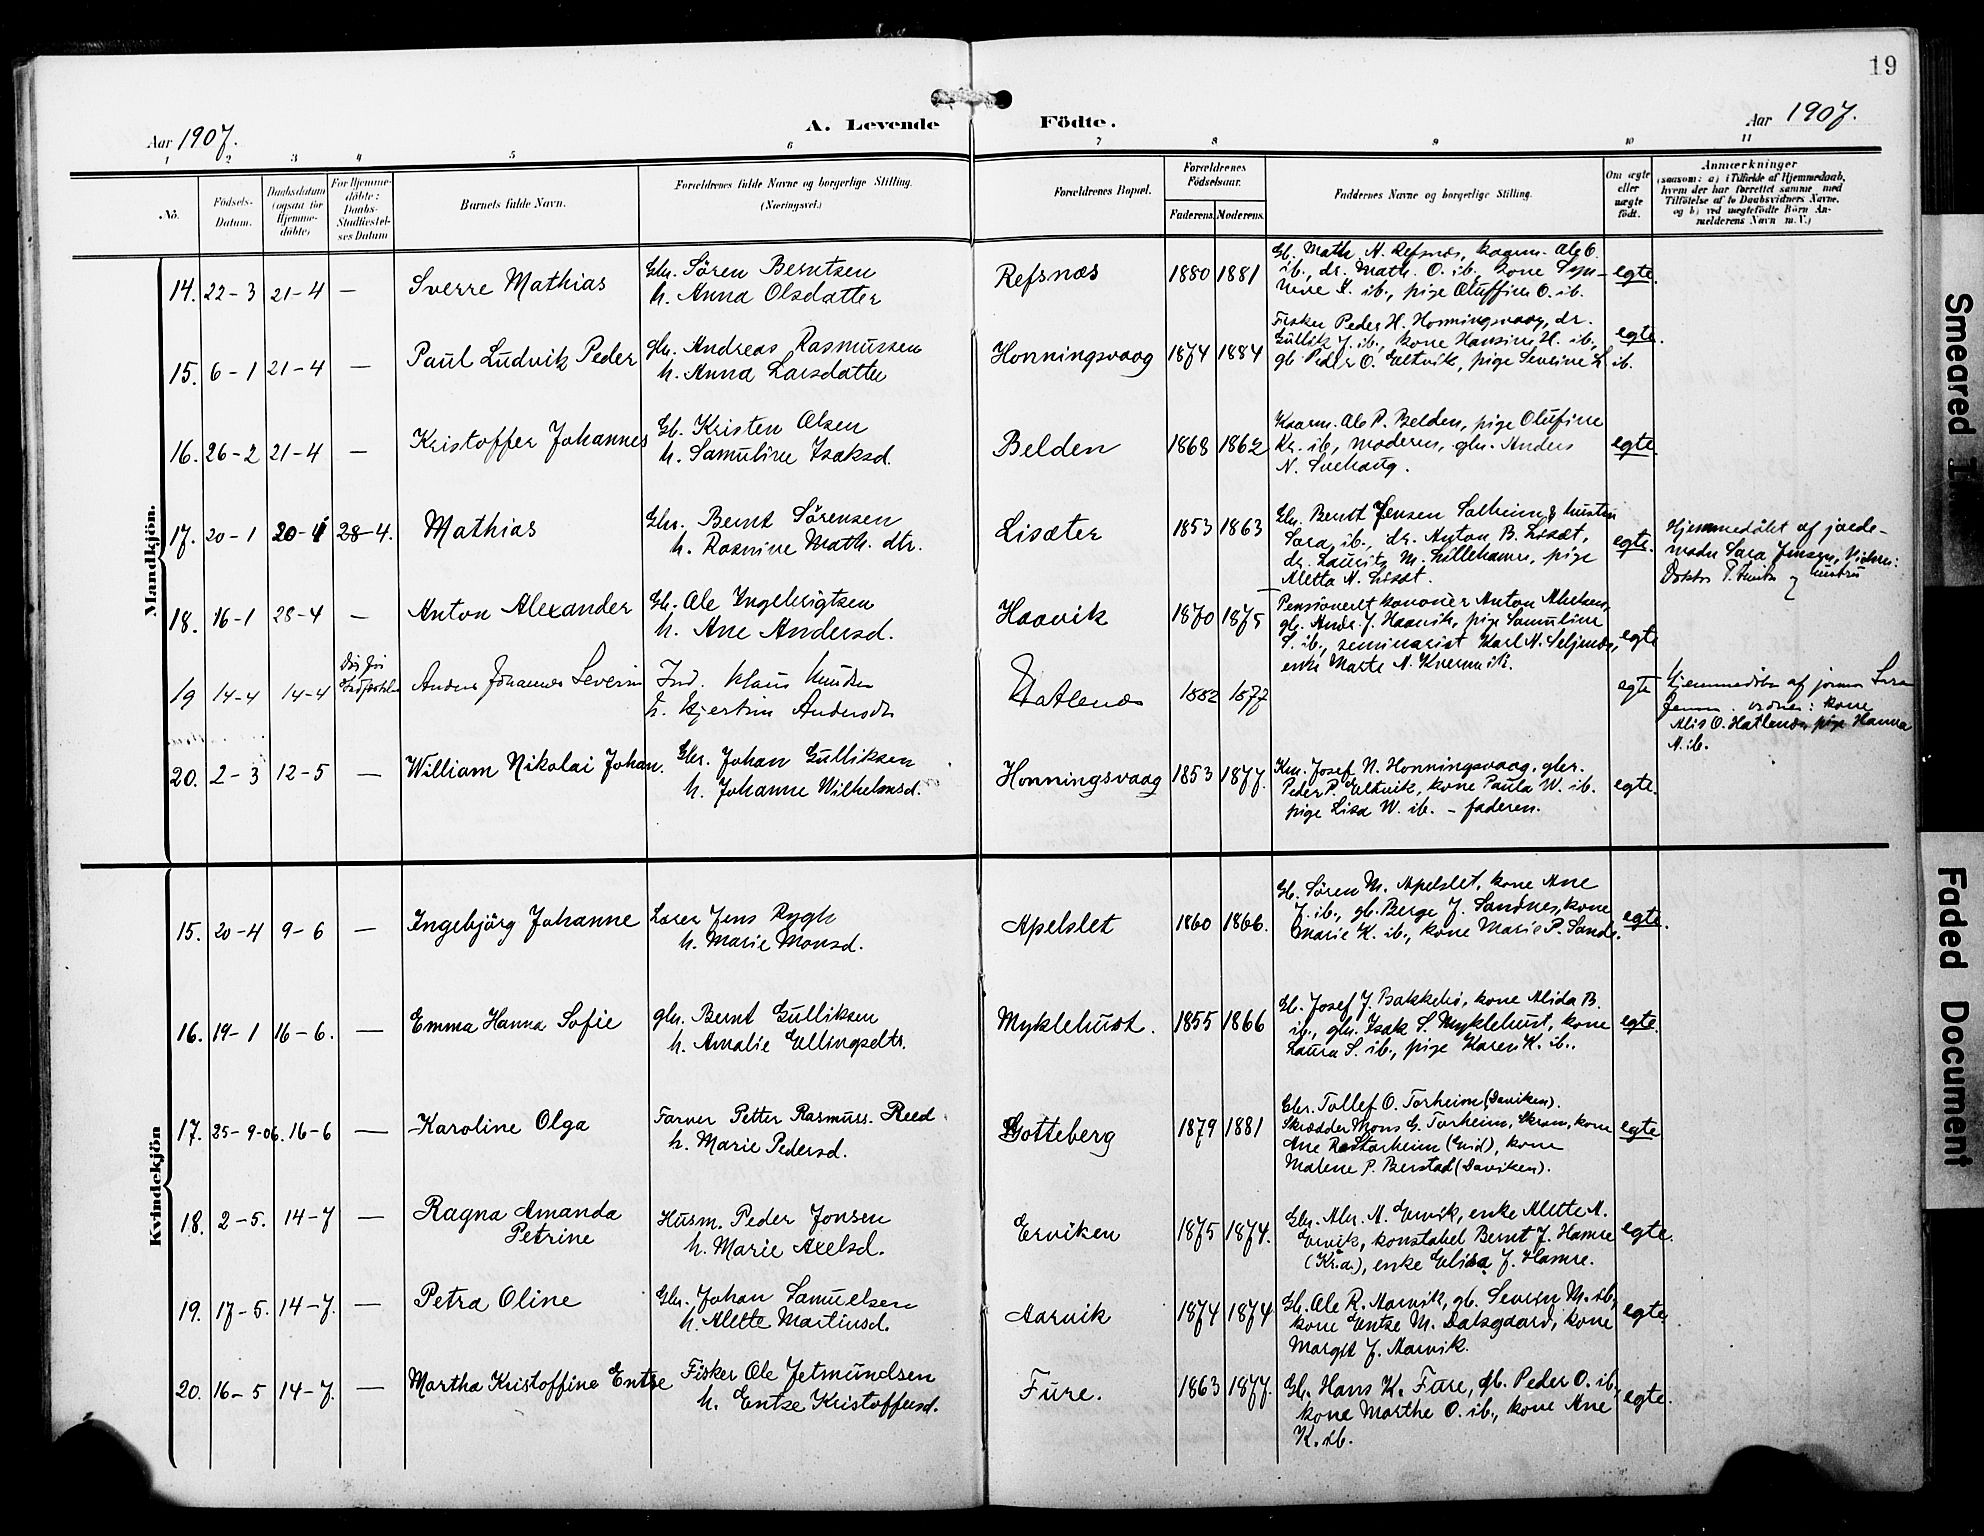 19
Aar 1907.
A. Levende Födte.
Aar 1907.
1 2 3 4 5 6 7 8 9 10 11
No.
Födsels-
Datum.
Daabsdatum
(ogsaa for
Hjemme-
döbte)
For Hjemme-
döbte:
Daabs-
Stadfæstel-
ses Datum
Barnets fulde Navn.
Forældrenes fulde Navne og borgerlige Stilling.
(Næringsvei.)
Forældrenes Bopæl.
Forældrenes
Födselsaar.
Faderens. Moderens.
Faddernes Navne og borgerlige Stilling.
Om ægte
eller
uægte
født.
Anmærkninger
(saasom: a) i Tilfælde af Hjemmedaab,
hvem der har forrettet samme, med
Tilföielse af to Daabsvidners Navne,
og b) ved uægtefödte Börn An-
melderens Navn m. V.)
Mandkjön.
14. 22-3 21-4 — Sverre Mathias
Gbr. Sören Berntsen
h. Anna Olsdatter
Refsnæs 1880 1881
Gb. Math. A. Refsnæs, kaarm. Ole O.
ib., dr. Math. O. ib., kone Syn-
neve A. ib., pige Oluffine O. ib.
egte.
15. 6-1 21-4 — Paul Ludvik Peder
gbr. Andreas Rasmussen
h. Anna Larsdatter
Honningsvaag 1874 1884
Fisker Peder H. Honningsvaag, dr.
Gullik J. ib., kone Hansine H. ib.,
gb. Peder O. Eltvik, pige Severine L. ib.
egte.
16. 26-2 21-4 — Kristoffer Johannes
Gb. Kristen Olsen
h. Samuline Isaksd.
Belden 1868 1862
Kaarm. Ole P. Belden, pige Olufine
Kr. ib., moderen, gbr. Anders
N.
egte.
17. 20-1 20-1 28-4. Mathias
Gbr. Bernt Sörensen
h. Rasmine Math. dtr.
Lisæter 1853 1863
Gbr. Bernt Jensen Salheim & hustru
Sara ib., dr. Anton B. Lisæt,
dr. Laurits M. Lillehamn, pige
Aletta N. Lisæt.
egte.
Hjemmedöbt af jorde-
moder Sara Jensen, Vidner:
Doktor og hustru
18. 16-1 28-4 — Anton Alexander
Gb. Ole Ingebrigtsen
h. Ane Andersd.
Haavik 1870 1875
Pensioneret kanoner Anton
gb. Andr. J. Haavik, pige Samuline
S. ib., seminarist Karl N. Seljenæs,
enke Marte N.
egte
19 14-4 14-4 Död för Stadfæstelse Anders Johannes Severin
Ind. Klaus Knudsen
h. Kjerstine Andersdtr
Hatlenæs 1882 1877
egte
Hjemmedöbt af jordm. Sara
Jensen. vidner: kone
Alis O. Hatlenæs, pige Hanna
A. ib.
20. 2-3 12-5 — William Nikolai Johan.
Gbr. Johan Gulliksen
h. Johanne Wilhelmsd.
Honningsvaag 1853 1877.
Km. Josef N. Honningsvaag, gbr.
Peder P. Eltvik, kone Paula W. ib.
pige Lisa W. ib. – faderen.
egte.
Kvindekjön
15. 20-4 9-6 — Ingebjörg Johanne
Lærer Jens Rygh
h. Marie Monsd.
Apelslet 1860 1866.
Gb. Sören M. Apelslet, kone Ane
J. ib., gb. Berge J. Sandnes, kone
Marie K. ib., kone Marie P. Sande.
egte.
16. 19-1 16-6. — Emma Hanna Sofie
gbr. Bernt Gulliksen
h. Amalie Ellingsdtr.
Myklebust. 1855 1866
Gb. Josef J. Bakkebö, kone Alida B.
ib., gbr. Isak S. Myklebust, kone
Laura S. ib., pige Karen K. ib..
egte.
17. 25-9-06. 16-6 — Karoline Olga
Farver Petter Rasmuss. Reed
h. Marie Pedersd.
Gotteberg 1879 1881
Gbr. Tollef O. Torheim (Daviken).
Skrædder Mons G. Torheim, Skram, kone
Ane R. Starheim (Eid), kone
Malene P. Berstad (Daviken).
egte
18. 2-5. 14-7 — Ragna Amanda
Petrine
Husm. Peder Jonsen
h. Marie Axelsd.
Erviken 1875 1874.
Gbr. Abr. A. Ervik, enke Alette A.
Ervik, konstabel Bernt J. Hamre
(Kr.a.), enke Elisa J. Hamre.
egte.
19. 17-5. 14-7. — Petra Oline
Gbr. Johan Samuelsen
h. Alette Martinsd.
Aarvik 1874 1874
Gb. Ole R. Aarvik, gb. Severin M. ib.,
kone Entse M. Dalsgaard, kone
Margit J. Aarvik.
egte
20. 16-5 14-7. — Martha Kristoffine Entse
Fisker Ole Jetmundsen
h. Entse Kristoffersd.
Fure. 1863 1877.
Gb. Hans K. Fure, gb. Peder O. ib.
kone Marthe O. ib., kone Ane
K. ib.
egte.
Smeared
Faded Document